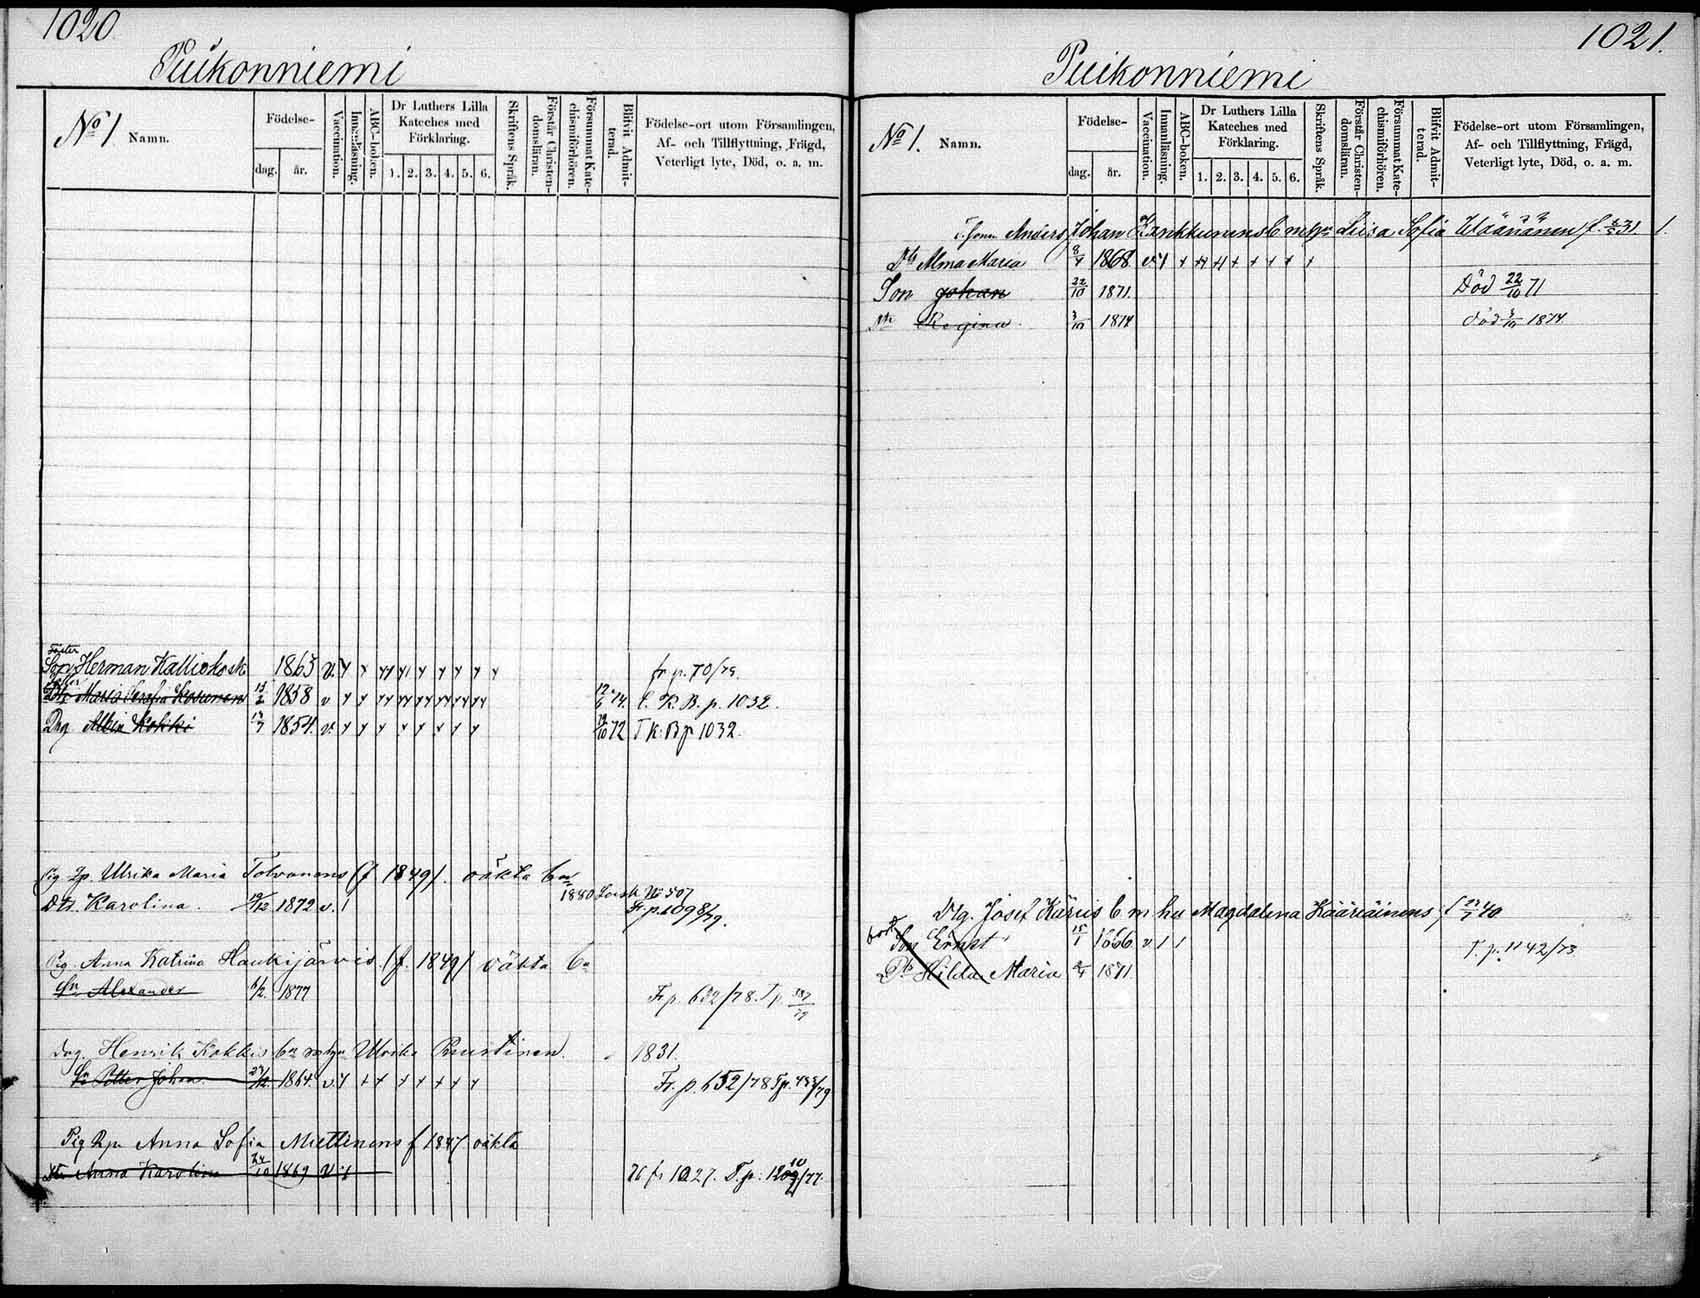 1020.
Puikonniemi
No 1. Namn.
Födelse-
dag. år.
Vaccination.
Innanläsning.
ABC-boken.
Dr Luthers Lilla
Kateches med
Förklaring.
1. 2. 3. 4. 5. 6.
Skriftens Språk.
Förstår Christen-
domsläran.
Försummat Kate-
chismiförhören.
Blifvit Admit-
terad.
Födelse-ort utom Församlingen,
Af- och Tillflyttning, Frägd,
Veterligt lyte, Död, o. a. m.
Foster
Son Herman Kalliokosk 1865 v. fr. p. 70/79.
Maria Serafia Kosunen 1858 v 74. K. B. p. 1032.
Drg Albin Kokki 1854. v. 72 T K. B p 1032.
Pig Ulrika Maria Tolvanens (f 1849). oäkta
Dtr. Karolina. 1872 v. 1880 No 507
Fr. p. 1098/79.
Pig. Anna Katrina Haukijärvis. (f. 1849) oäkta
Alexander 1877 Fr p. 652/78. T p. 387/79
Drg. Henrik Kokkis m hu Ulrika Ruustinen. 1831.
Petter Johan 1864 v. Fr. p. 652/78 T p. /79
Pig Anna Sofia Miettinens f 1847 oäkta
Anna Karolina 24/10 1869 v 76 fr 1027. T. p. /77.
1021.
Puikonniemi
No 1. Namn.
Födelse-
dag. år.
Vaccination.
Innanläsning.
ABC-boken.
Dr Luthers Lilla
Kateches med
Förklaring.
1. 2. 3. 4. 5. 6.
Skriftens Språk.
Förstår Christen-
domsläran.
Försummat Kate-
chismiförhören.
Blifvit Admit-
terad.
Födelse-ort utom Församlingen,
Af- och Tillflyttning, Frägd,
Veterligt lyte, Död, o. a. m.
Anders Johan Kankkunens b m hu Liisa Sofia Väänänen f. 31.
Dtr Alma Maria 1868 v
Son Johan 22/10 1871. Död 22/10 71
Regina 1874 död 1874.
Drg. Josef Käriis b m hu Magdalena Kääriäinens f 40
bort
Son Ernst 15/1 1866 v T. p. 1142/73
Hilda Maria 1871